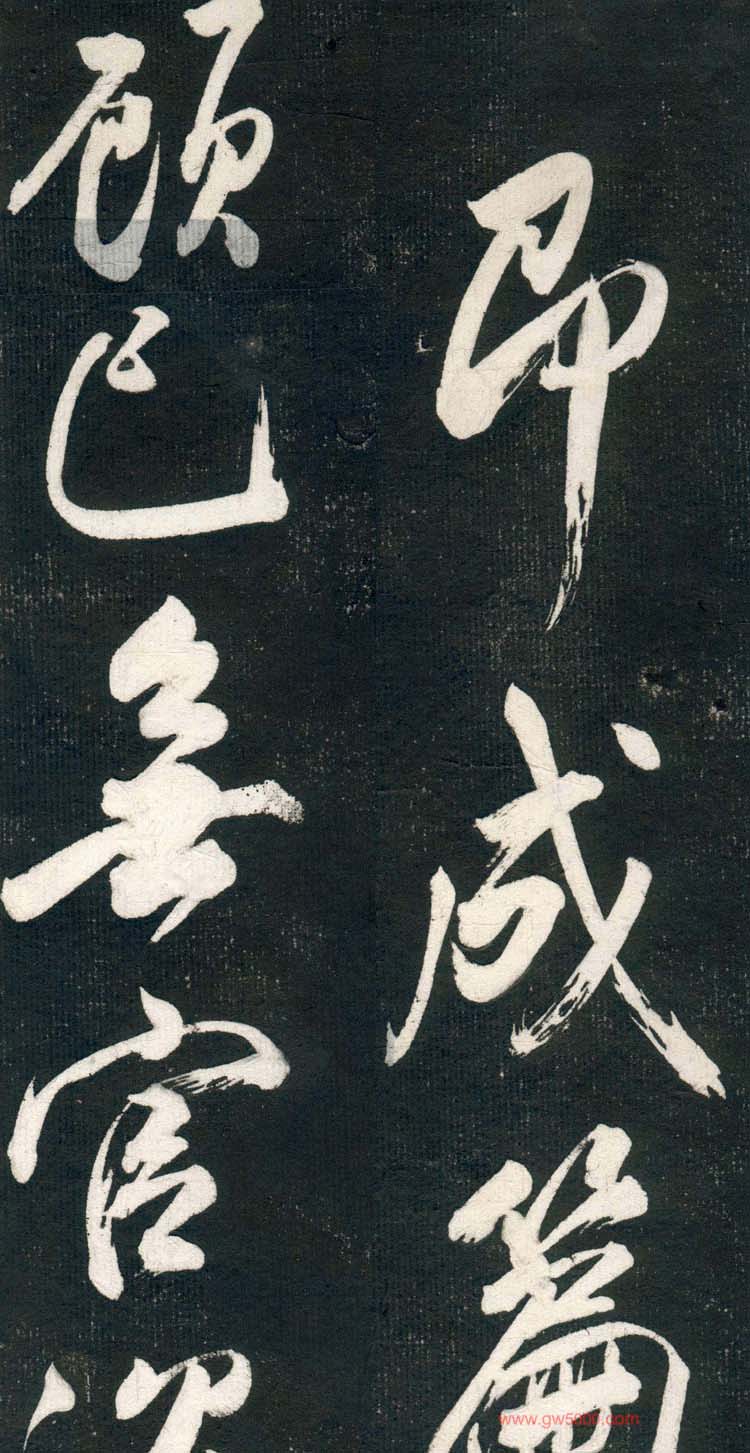 即成篇
顧己無官
www.gw5000.com